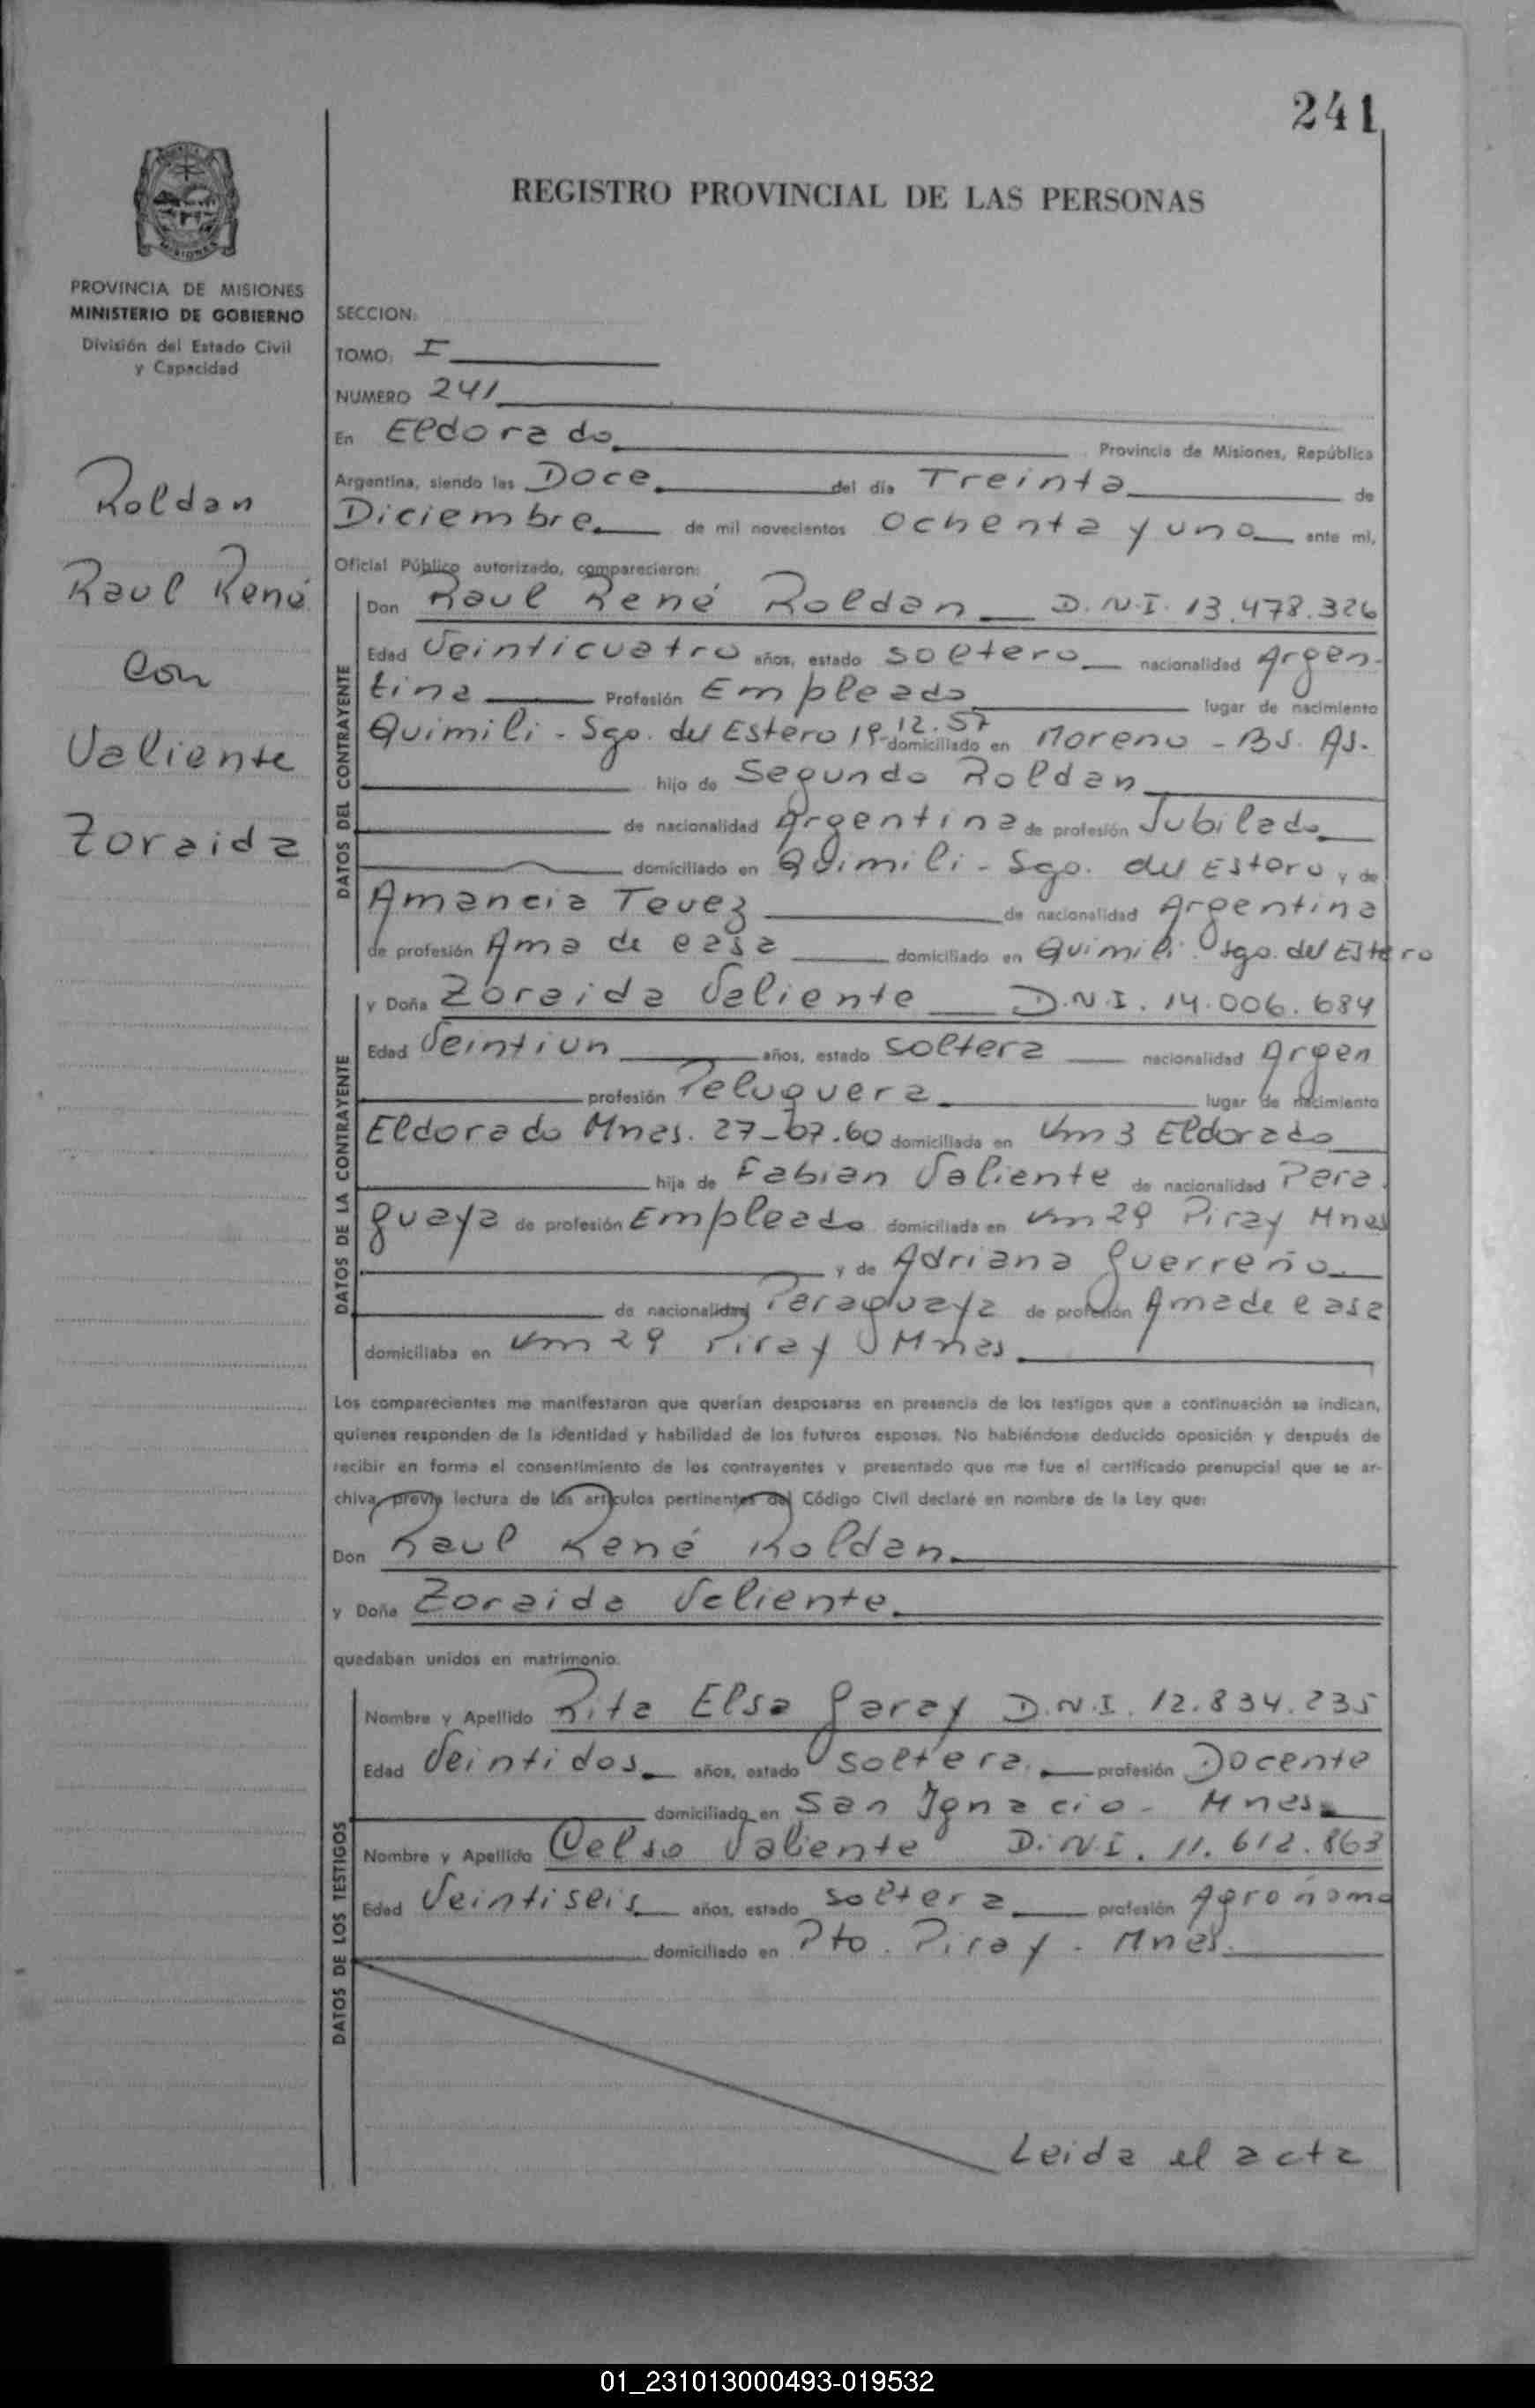 241
REGISTRO PROVINCIAL DE LAS PERSONAS
MISIONES
PROVINCIA DE MISIONES
MINISTERIO DE GOBIERNO
División del Estado Civil
y Capacidad
Roldan
Raul René
con
Valiente
Zoraida
SECCION:
TOMO: I
NUMERO 241
En Eldorado Provincia de Misiones, República
Argentina, siendo las Doce del día Treinta de
Diciembre de mil novecientos ochenta y uno ante mi,
Oficial Público autorizado, comparecieron:
DATOS DEL CONTRAYENTE
Don Raul René Roldan D.N.I. 13.478.326
Edad Veinticuatro años, estado soltero nacionalidad Argen-
tina Profesión Empleado lugar de nacimiento
Quimili - Sgo. del Estero 19-12.57 domiciliado en Moreno - Bs. As.
hijo de Segundo Roldan
de nacionalidad Argentina de profesión Jubilado
domiciliado en Quimili - Sgo. del Estero y de
Amancia Tevez de nacionalidad Argentina
de profesión Ama de casa domiciliado en Quimili. Sgo. del Estero
DATOS DE LA CONTRAYENTE
y Doña Zoraida Valiente D.N.I. 14.006.684
Edad Veintiun años, estado soltera nacionalidad Argen
profesión Peluquera lugar de nacimiento
Eldorado Mnes. 27-07.60 domiciliada en Km 3 Eldorado
hija de Fabian Valiente de nacionalidad Para
guaya de profesión Empleado domiciliada en Km 29 Piray Mnes
y de Adriana Guerreño
de nacionalidad Paraguaya de profesión Ama de casa
domiciliaba en Km 29 Piray Mnes
Los comparecientes me manifestaron que querían desposarse en presencia de los testigos que a continuación se indican,
quienes responden de la identidad y habilidad de los futuros esposos. No habiéndose deducido oposición y después de
recibir en forma el consentimiento de los contrayentes y presentado que me fue el certificado prenupcial que se ar-
chiva, previa lectura de los artículos pertinentes del Código Civil declaré en nombre de la Ley que:
Don Raul René Roldan
y Doña Zoraida Valiente
quedaban unidos en matrimonio.
DATOS DE LOS TESTIGOS
Nombre y Apellido Rita Elsa Garay D.N.I. 12.834.235
Edad Veintidos años, estado soltera profesión Docente
domiciliado en San Ignacio - Mnes
Nombre y Apellido Celso Valiente D.N.I. 11.612.863
Edad Veintiseis años, estado soltera profesión Agronomo
domiciliado en Pto. Piray - Mnes.
Leida el acta
01_231013000493-019532